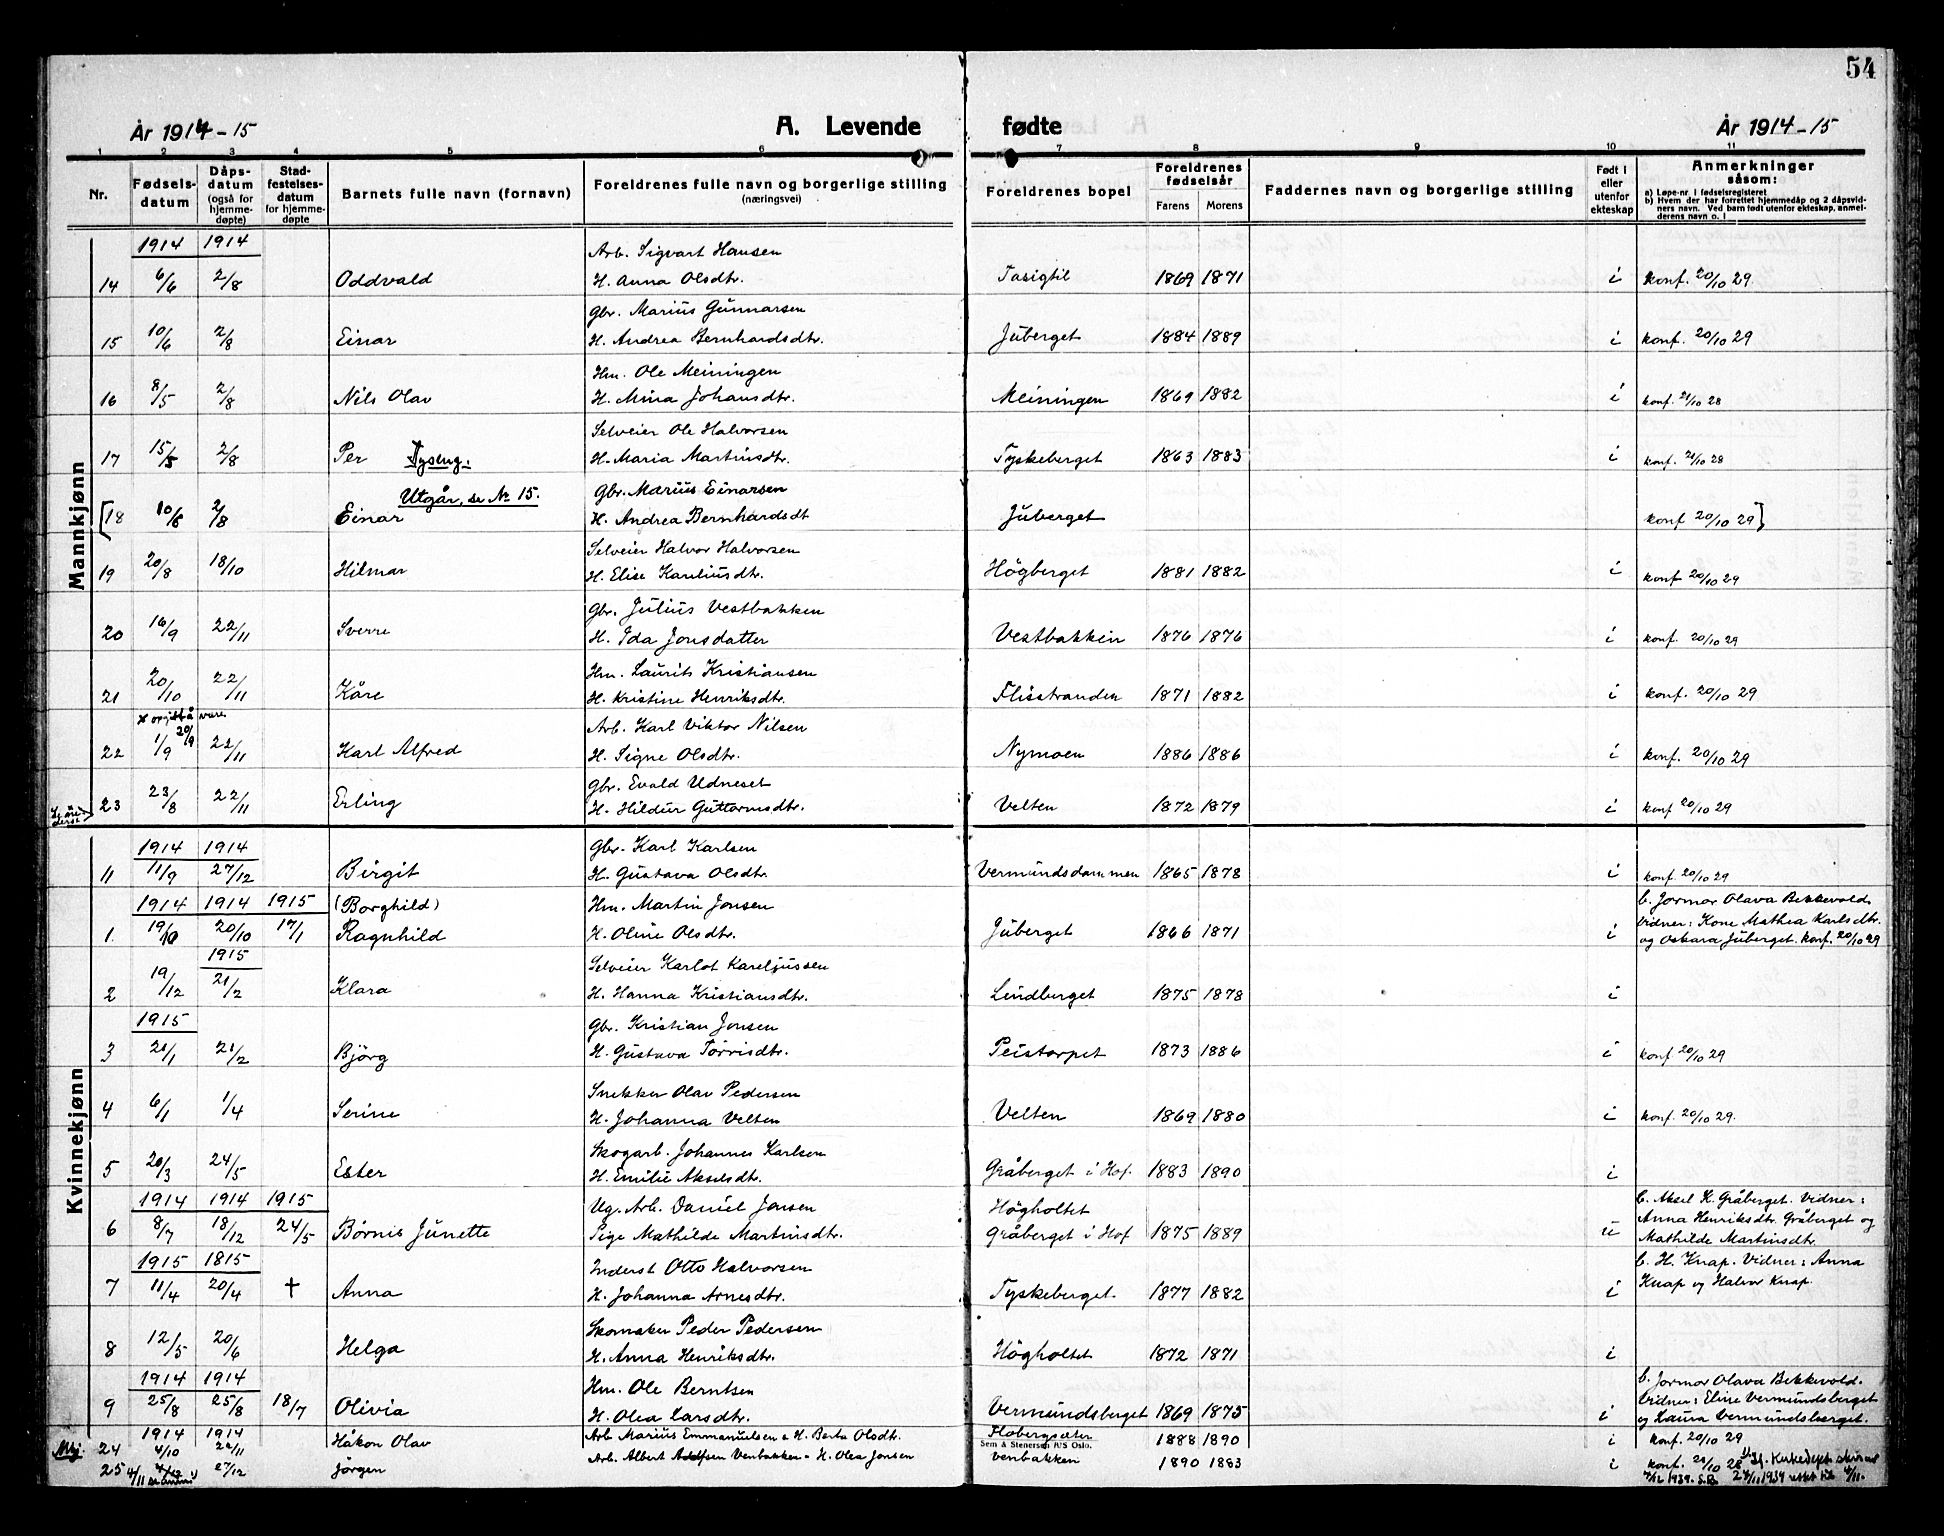 54
År 1914-15 A. Levende fødte År 1914-15
1 2 3 4 5 6 7 8 9 10 11
Nr. Fødsels-datum Dåps-datum (også for hjemme-døpte) Stad-festelses-datum for hjemme-døpte Barnets fulle navn (fornavn) Foreldrenes fulle navn og borgerlige stilling (næringsvei) Foreldrenes bopel Foreldrenes fødselsår Farens Morens Faddernes navn og borgerlige stilling Født i eller utenfor ekteskap Anmerkninger såsom:
a) Løpe-nr. i fødselsregisteret
b) Hvem der har forrettet hjemmedåp og 2 dåpsvid-
ners navn. Ved barn født utenfor ekteskap, anmel-
derens navn o. l
Mannkjønn
1914 1914 Arb. Sigvart Hansen
14 6/6 2/8 Oddvald H. Anna Olsdtr. Tasigtil 1869 1871 i konf. 20/10 29.
Gbr. Marius Gunnarsen
15 10/6 2/8 Einar H. Andrea Bernhardsdtr. Juberget 1884 1889 i konf. 20/10 29
Hm. Ole Meiningen
16 8/5 2/8 Nils Olav H. Mina Johansdtr. Meiningen 1869 1882 i konf. 21/10 28
Selveier Ole Halvorsen
17 15/5 2/8 Per Tyseng: H. Maria Martinsdtr. Tyskeberget 1863 1883 i konf. 21/10 28
Utgår, se Nr 15. Gbr. Marius Einarsen
[18 10/6 2/8 Einar H. Andrea Bernhardsdt Juberget konf 20/10 29]
Selveier Halvor Halvorsen
19 20/8 18/10 Hilmar H. Elise Kareliusdtr. Högberget 1881 1882 i konf 20/10 29
Gbr. Julius Vestbakken
20 16/9 22/11 Sverre H. Ida Jonsdatter Vestbakken 1876 1876 i konf. 20/10 29
Hm. Laurits Kristiansen
21 20/10 22/11 Kåre H. Kristine Henriksdtr. Flisstranden 1871 1882 i konf. 20/10 29
x opgitt å være 20/9 Arb. Karl Viktor Nilsen
22 1/9 22/11 Karl Alfred H. Signe Olsdtr. Nymoen 1886 1886 i konf. 20/10 29
Gbr. Evald Udneset
23 23/8 22/11 Erling H. Hildur Guttormsdtr. Velten 1872 1879 i konf 20/10 29
Kvinnekjønn
1914 1914 Gbr. Karl Karlsen
11 11/9 27/12 Birgit H. Gustava Olsdtr. Vermundsdammen 1865 1878 i konf. 20/10 29
1914 1914 1915 (Borghild) Hm. Martin Jonsen b. Jormor Olava Bekkevold.
1. 19/10 20/10 17/1 Ragnhild H. Oline Olsdtr. Juberget 1866 1871 i Vidner: Kone Mathea Karlsdtr. og Oskara Juberget. konf. 20/10 29
1915 Selveier Karlot Kareljussen
2 19/12 21/2 Klara H. Hanna Kristiansdtr. Lindberget 1875 1878 i
1915 Gbr. Kristian Jonsen
3 21/1 21/2 Björg H. Gustava Torrisdtr. Peistorpet 1873 1886 i konf 20/10 29
Snekker Olav Pedersen
4 6/1 1/4 Serine H. Johanna Velten Velten 1869 1880 i konf. 20/10 29.
Skogarb. Johannes Karlsen
5 20/3 24/5 Ester H. Emilie Akselsdt. Gråberget i Hof. 1883 1890 i
1914 1914 1915 Ug. Arb. Daniel Jonsen Högholtet b. Aksel H. Gråberget. Vidner:
6 8/7 18/12 24/5 Børnis Junette Pige Mathilde Martinsdtr. Gråberget i Hof 1875 1889 u Anna Henriksdtr. Gråberget og Mathilde Martinsdtr.
1915 1815 Inderst Otto Halvorsen b. H. Knap. Vidner: Anna
7 11/4 20/4 † Anna H. Johanna Arnesdtr. Tyskeberget. 1877 1882 i Knap og Halvor Knap.
Skomaker Peder Pedersen
8 12/5 20/6 Helga H. Anna Henriksdtr. Högholtet 1872 1871 i
1914 1914 Hm. Ole Berntsen b. Jormor Olava Bekkevold.
9 25/8 25/8 18/7 Olivia H. Olea Larsdtr. Vermundsberget 1869 1875 i Vidner: Eline Vermundsberget og Laura Vermundsberget.
1914 1914
Mkj. 24 4/10 24/11 Håkon Olav Arb Marius Emmanuelsen & H. Berta Olsdtr. Flobergseter 1888 1890 i konf. 20/10 29
Sem & Stenersen A/S Oslo.
25 4/12 27/12 Jörgen Arb. Albert Adolfsen Venbakken - H. Olea Jonsen Venbakken 1890 1883 i konf. 21/10 28
4/11